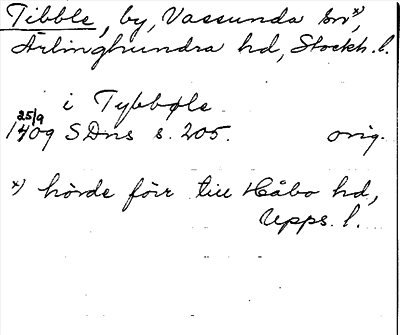 Tibble, by, Vassunda sn x),
Ärlinghundra hd, Stockh. l.
i Tybbøle
25/9
1409 SDns s. 205. orig.
x) hörde förr till Håbo hd,
Upps. l.